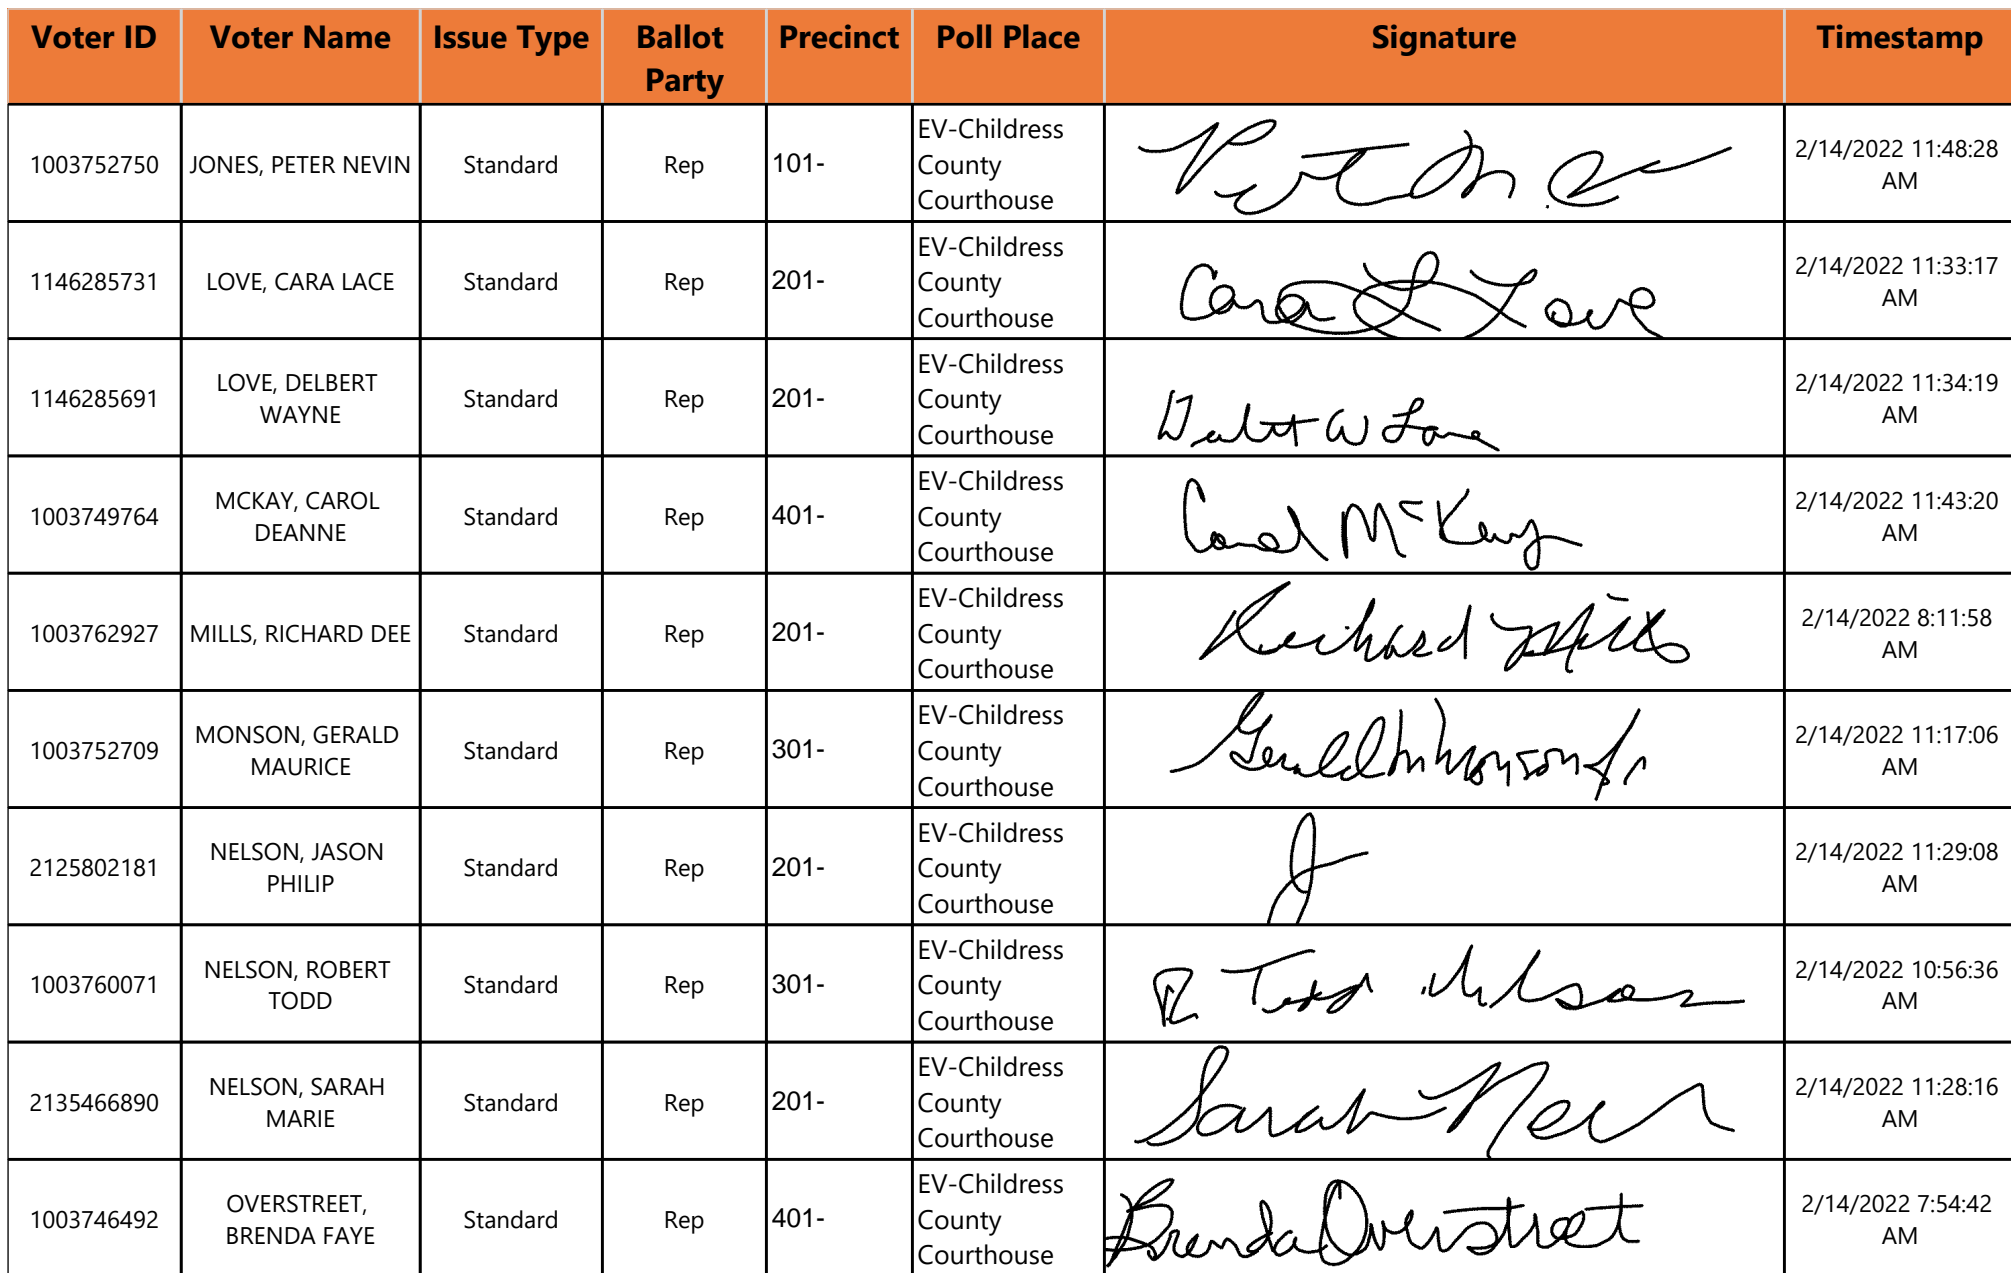 Voter ID Voter Name Issue Type Ballot Party Precinct Poll Place Signature Timestamp
1003752750 JONES, PETER NEVIN Standard Rep 101- EV-Childress County Courthouse 2/14/2022 11:48:28 AM
1146285731 LOVE, CARA LACE Standard Rep 201- EV-Childress County Courthouse Cara L Love 2/14/2022 11:33:17 AM
1146285691 LOVE, DELBERT WAYNE Standard Rep 201- EV-Childress County Courthouse Delbert W Love 2/14/2022 11:34:19 AM
1003749764 MCKAY, CAROL DEANNE Standard Rep 401- EV-Childress County Courthouse Carol McKay 2/14/2022 11:43:20 AM
1003762927 MILLS, RICHARD DEE Standard Rep 201- EV-Childress County Courthouse Richard Mills 2/14/2022 8:11:58 AM
1003752709 MONSON, GERALD MAURICE Standard Rep 301- EV-Childress County Courthouse Gerald M Monson Jr 2/14/2022 11:17:06 AM
2125802181 NELSON, JASON PHILIP Standard Rep 201- EV-Childress County Courthouse J 2/14/2022 11:29:08 AM
1003760071 NELSON, ROBERT TODD Standard Rep 301- EV-Childress County Courthouse R Todd Nelson 2/14/2022 10:56:36 AM
2135466890 NELSON, SARAH MARIE Standard Rep 201- EV-Childress County Courthouse Sarah 2/14/2022 11:28:16 AM
1003746492 OVERSTREET, BRENDA FAYE Standard Rep 401- EV-Childress County Courthouse Brenda Overstreet 2/14/2022 7:54:42 AM